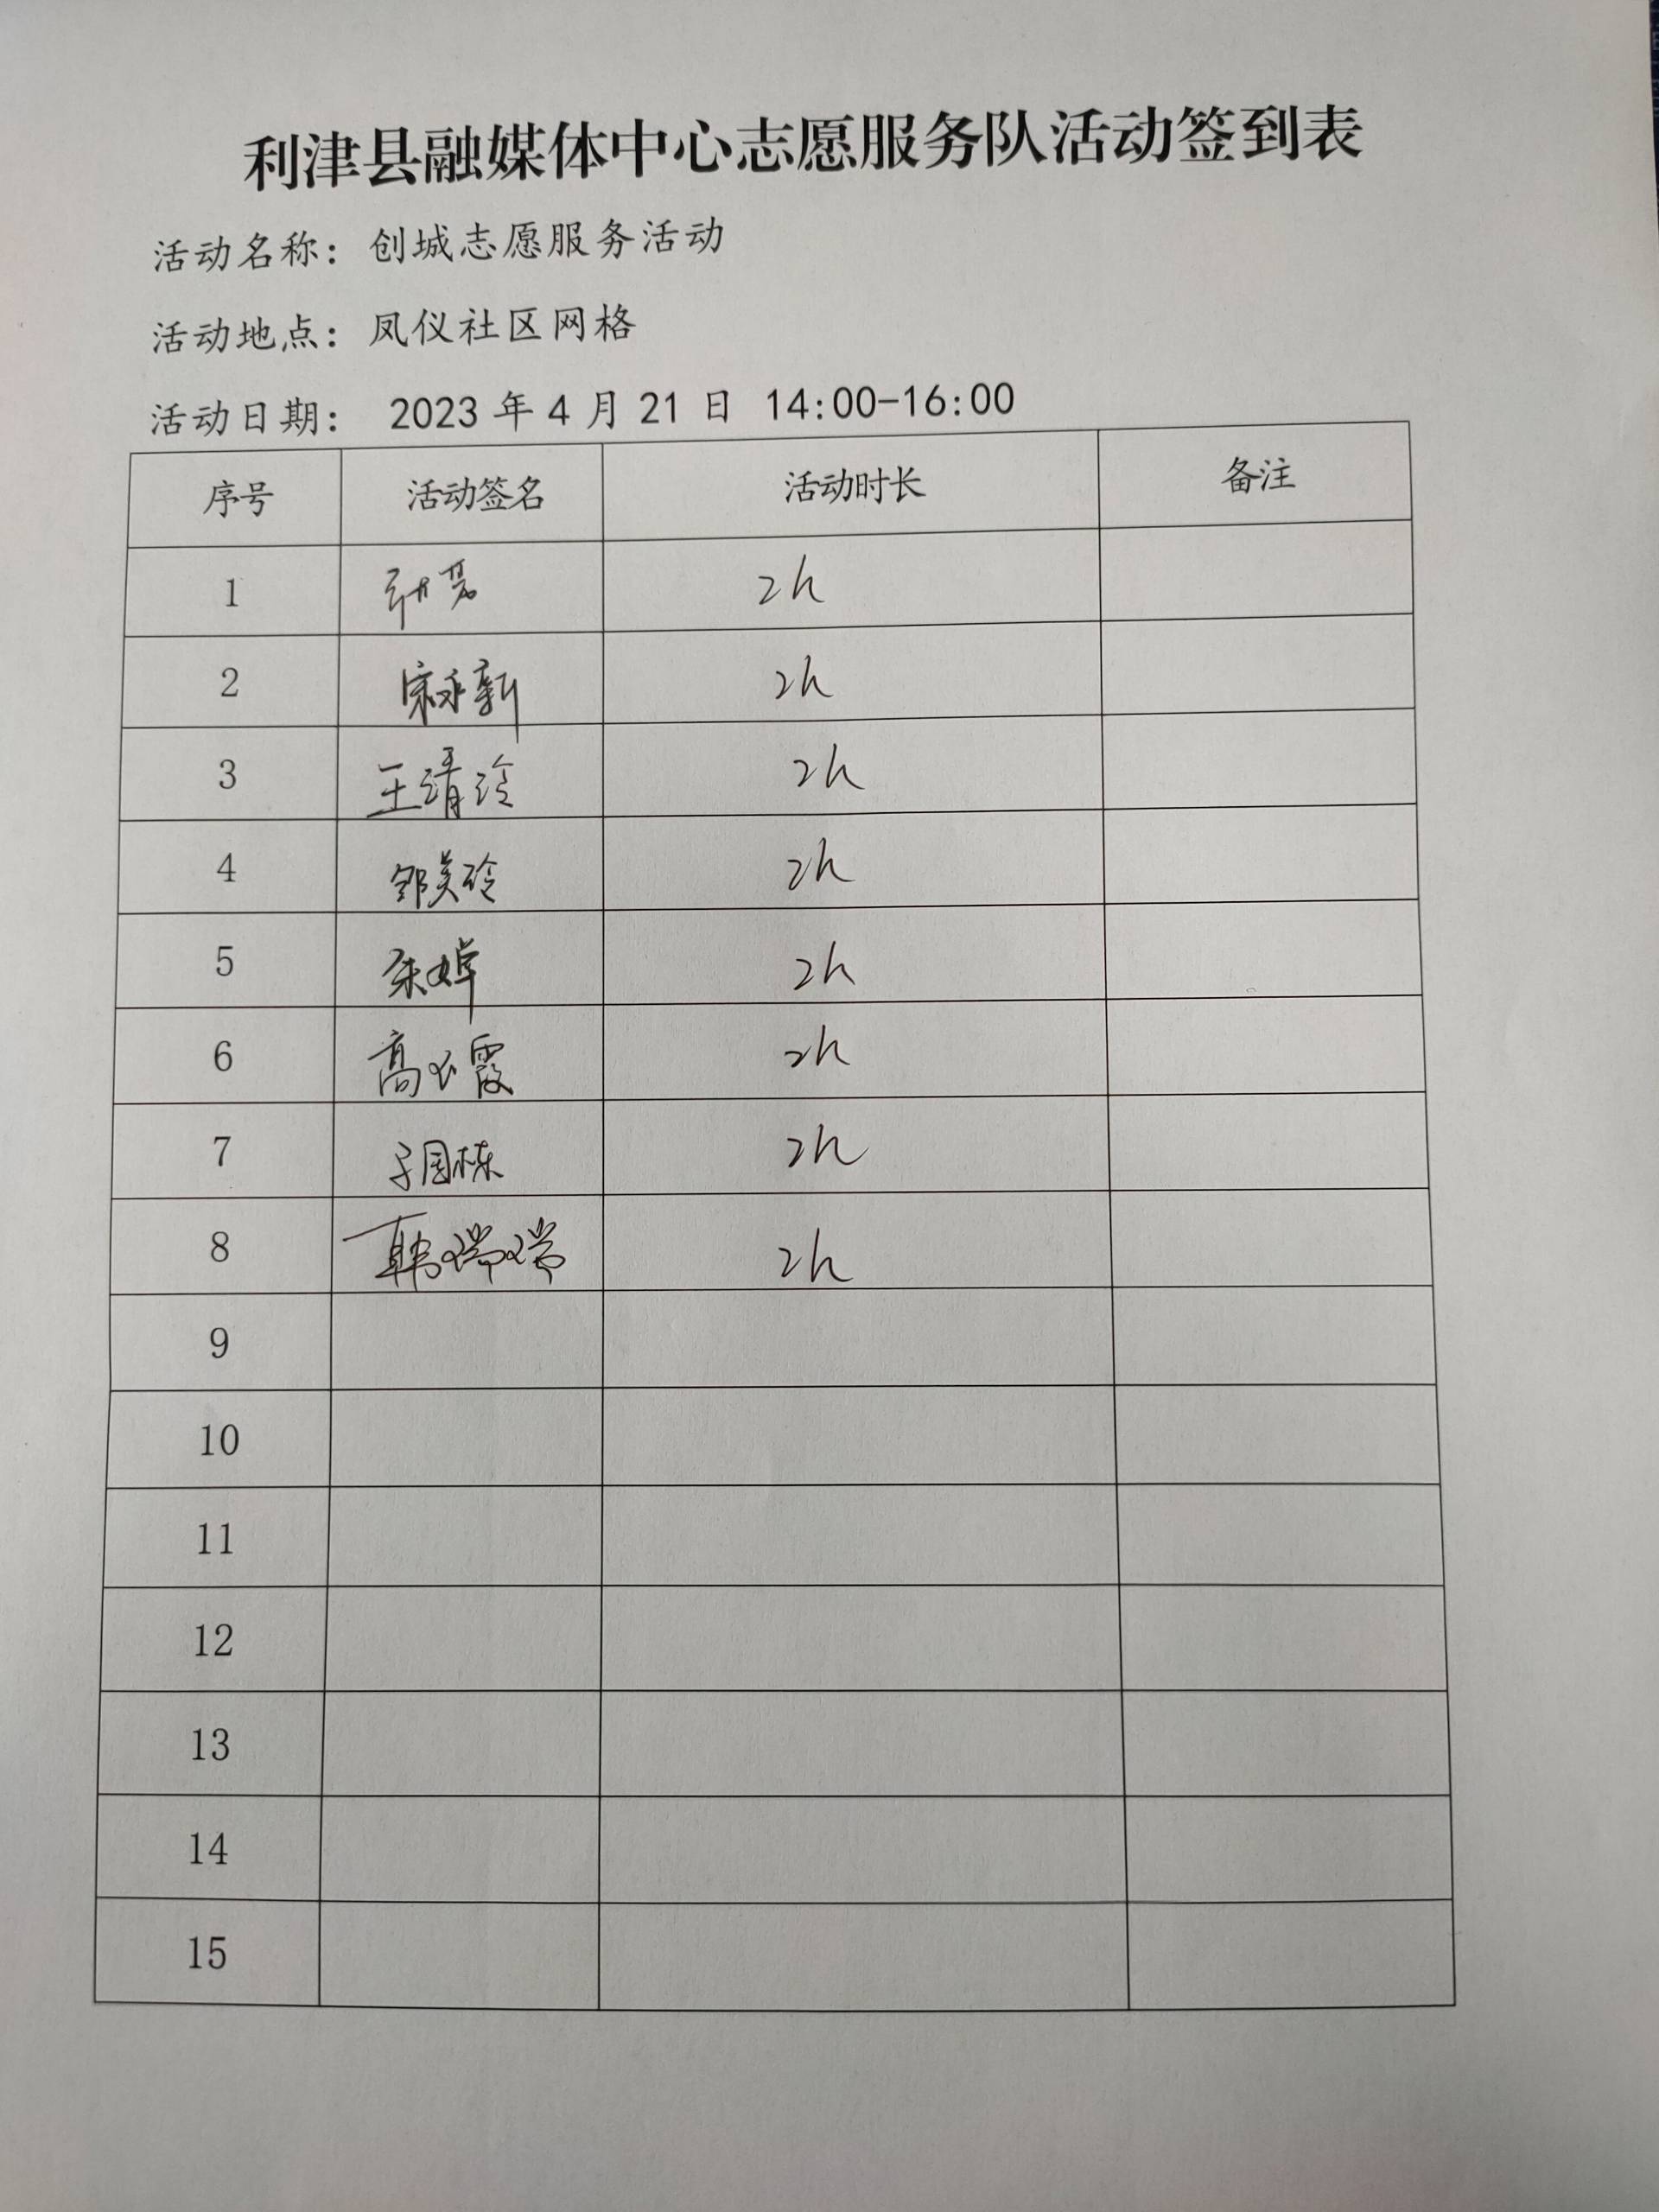 利津县融媒体中心志愿服务队活动签到表
活动名称：创城志愿服务活动
活动地点：凤仪社区网格
活动日期： 2023 年 4 月 21 日 14:00-16:00
序号 活动签名 活动时长 备注
1 2h
2 宋永新 2h
3 王清玲 2h
4 邹美玲 2h
5 2h
6 高云霞 2h
7 于国栋 2h
8 韩瑞瑞 2h
9
10
11
12
13
14
15